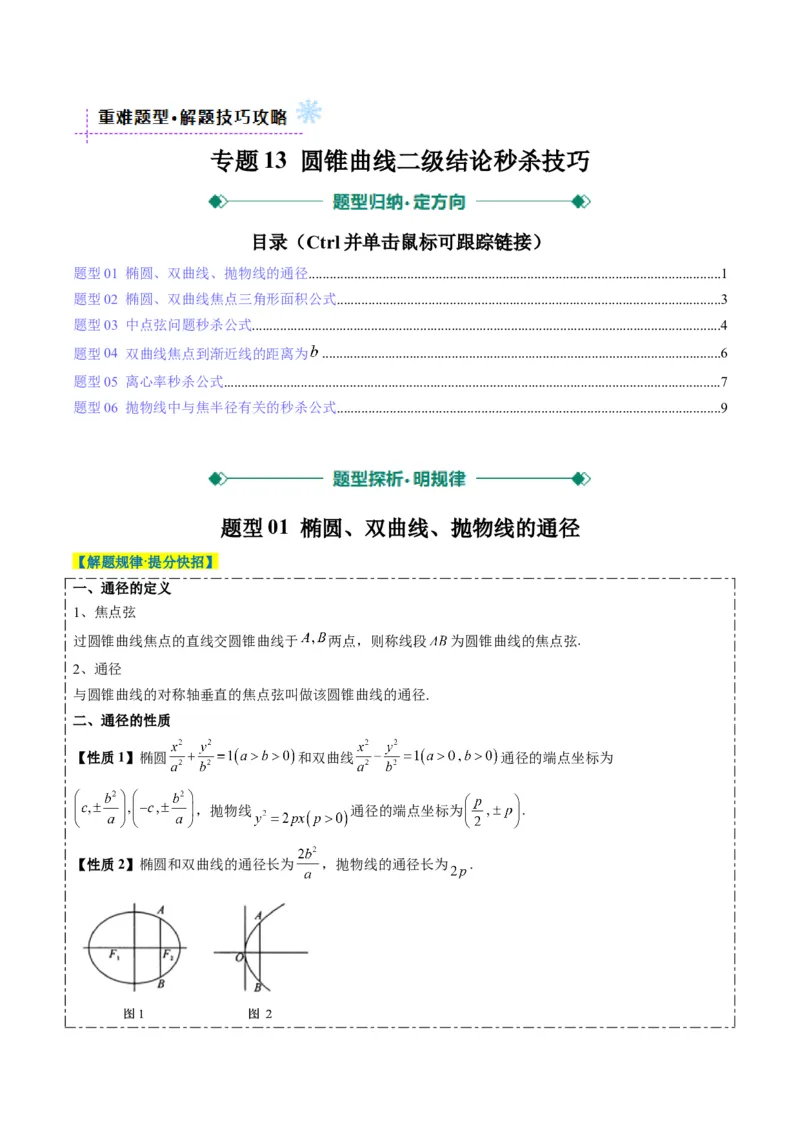 重难题型•解题技巧攻略
专题 13 圆锥曲线二级结论秒杀技巧
题型归纳•定方向
目录（Ctrl 并单击鼠标可跟踪链接）
题型 01 椭圆、双曲线、抛物线的通径....................1
题型 02 椭圆、双曲线焦点三角形面积公式....................3
题型 03 中点弦问题秒杀公式....................4
题型 04 双曲线焦点到渐近线的距离为 b ....................6
题型 05 离心率秒杀公式....................7
题型 06 抛物线中与焦半径有关的秒杀公式....................9
题型探析•明规律
题型 01 椭圆、双曲线、抛物线的通径
【解题规律·提分快招】
一、通径的定义
1、焦点弦
过圆锥曲线焦点的直线交圆锥曲线于 A,B 两点，则称线段 AB 为圆锥曲线的焦点弦.
2、通径
与圆锥曲线的对称轴垂直的焦点弦叫做该圆锥曲线的通径.
二、通径的性质
【性质 1】椭圆 x²/a² + y²/b² =1(a>b>0) 和双曲线 x²/a² − y²/b² =1(a>0,b>0) 通径的端点坐标为
(c,± b²/a),(−c,± b²/a)，抛物线 y²=2px(p>0) 通径的端点坐标为 (p/2,±p).
【性质 2】椭圆和双曲线的通径长为 2b²/a ，抛物线的通径长为 2p .
A
F₁ F₂
B
A
O
B
图 1 图 2